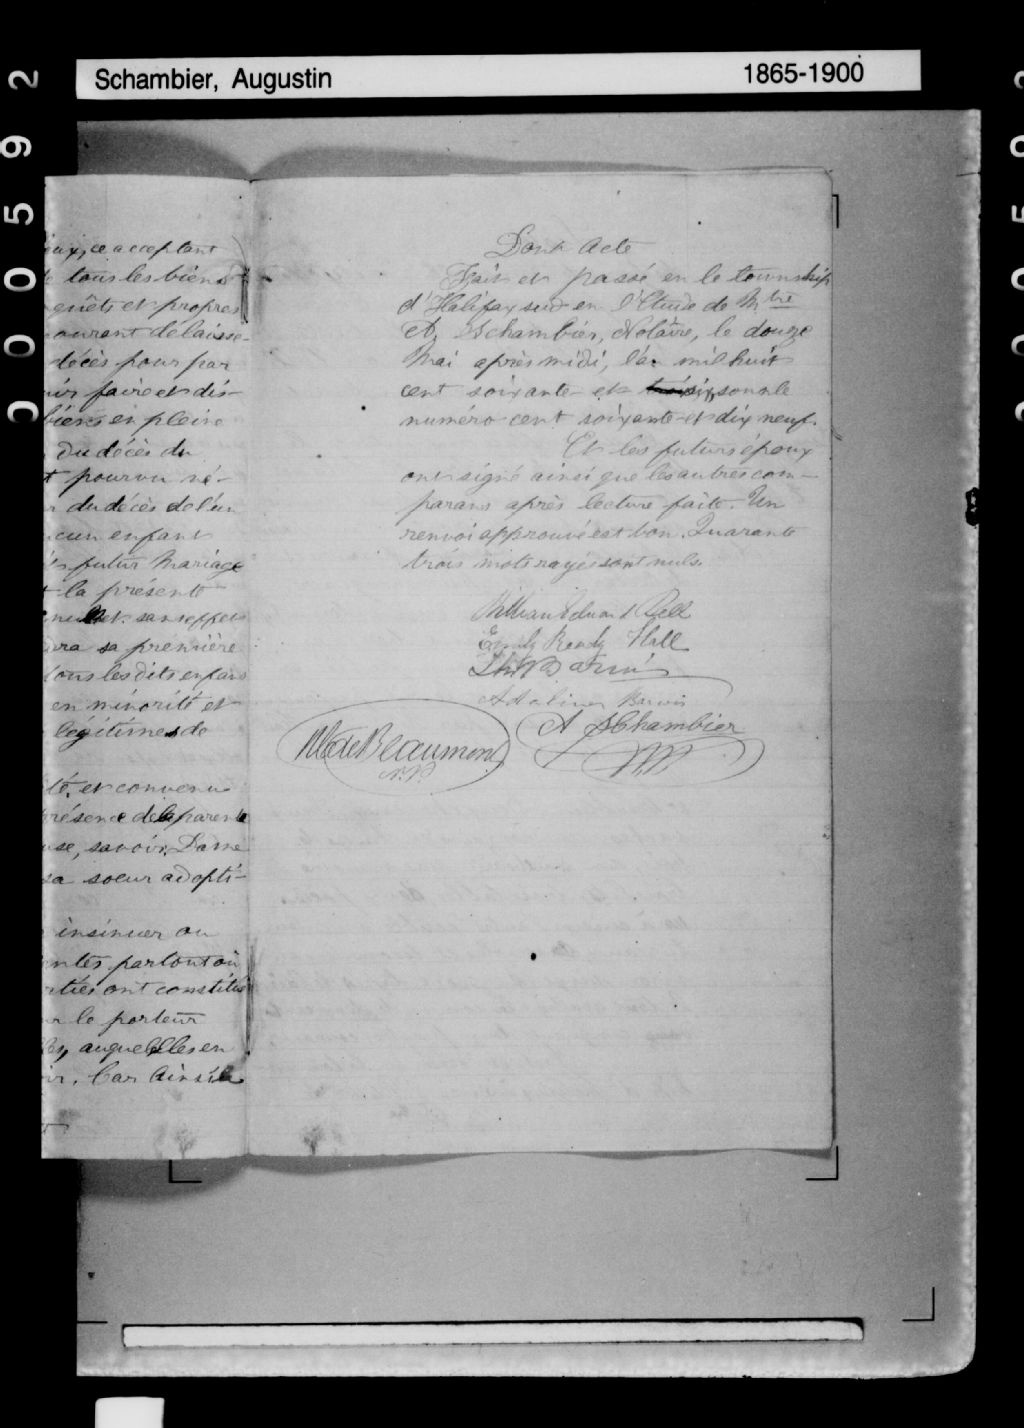 Schambier, Augustin
1865-1900
000592
ux, ce acceptant
tous les biens
quêts et propres
mourant délaisse-
décès pour par
ir faire et dis-
biens en pleine
du décès du
pourvu né-
du décès de l'un
cun enfant
futur Mariage
la présente
nul et sans effets
ra sa première
tous les dits enfans
en minorité et
légitimes de
té, et convenu
résence de la parenté
use, savoir, Dame
sa soeur adopti-
insinuer ou
ntes partout où
rties ont constitué
le porteur
auquel elles en
ir. Car Ainsi
Dont Acte
Fait et passé en le township
d'Halifax sud en l'Etude de Mtre
A. Schambier, Notaire, le douze
Mai après midi, l'an mil huit
cent soixante et trois six, sous le
numéro cent soixante et dix neuf.
Et les futurs époux
ont signé ainsi que les autres com-
parans après lecture faite. Un
renvoi approuvé est bon. Quarante
trois mots rayés sont nuls.
William Edward Bell
Emily Ready Hall
Barwis
Adaline Barwis
A Schambier
N.P.
de Beaumont
N.P.